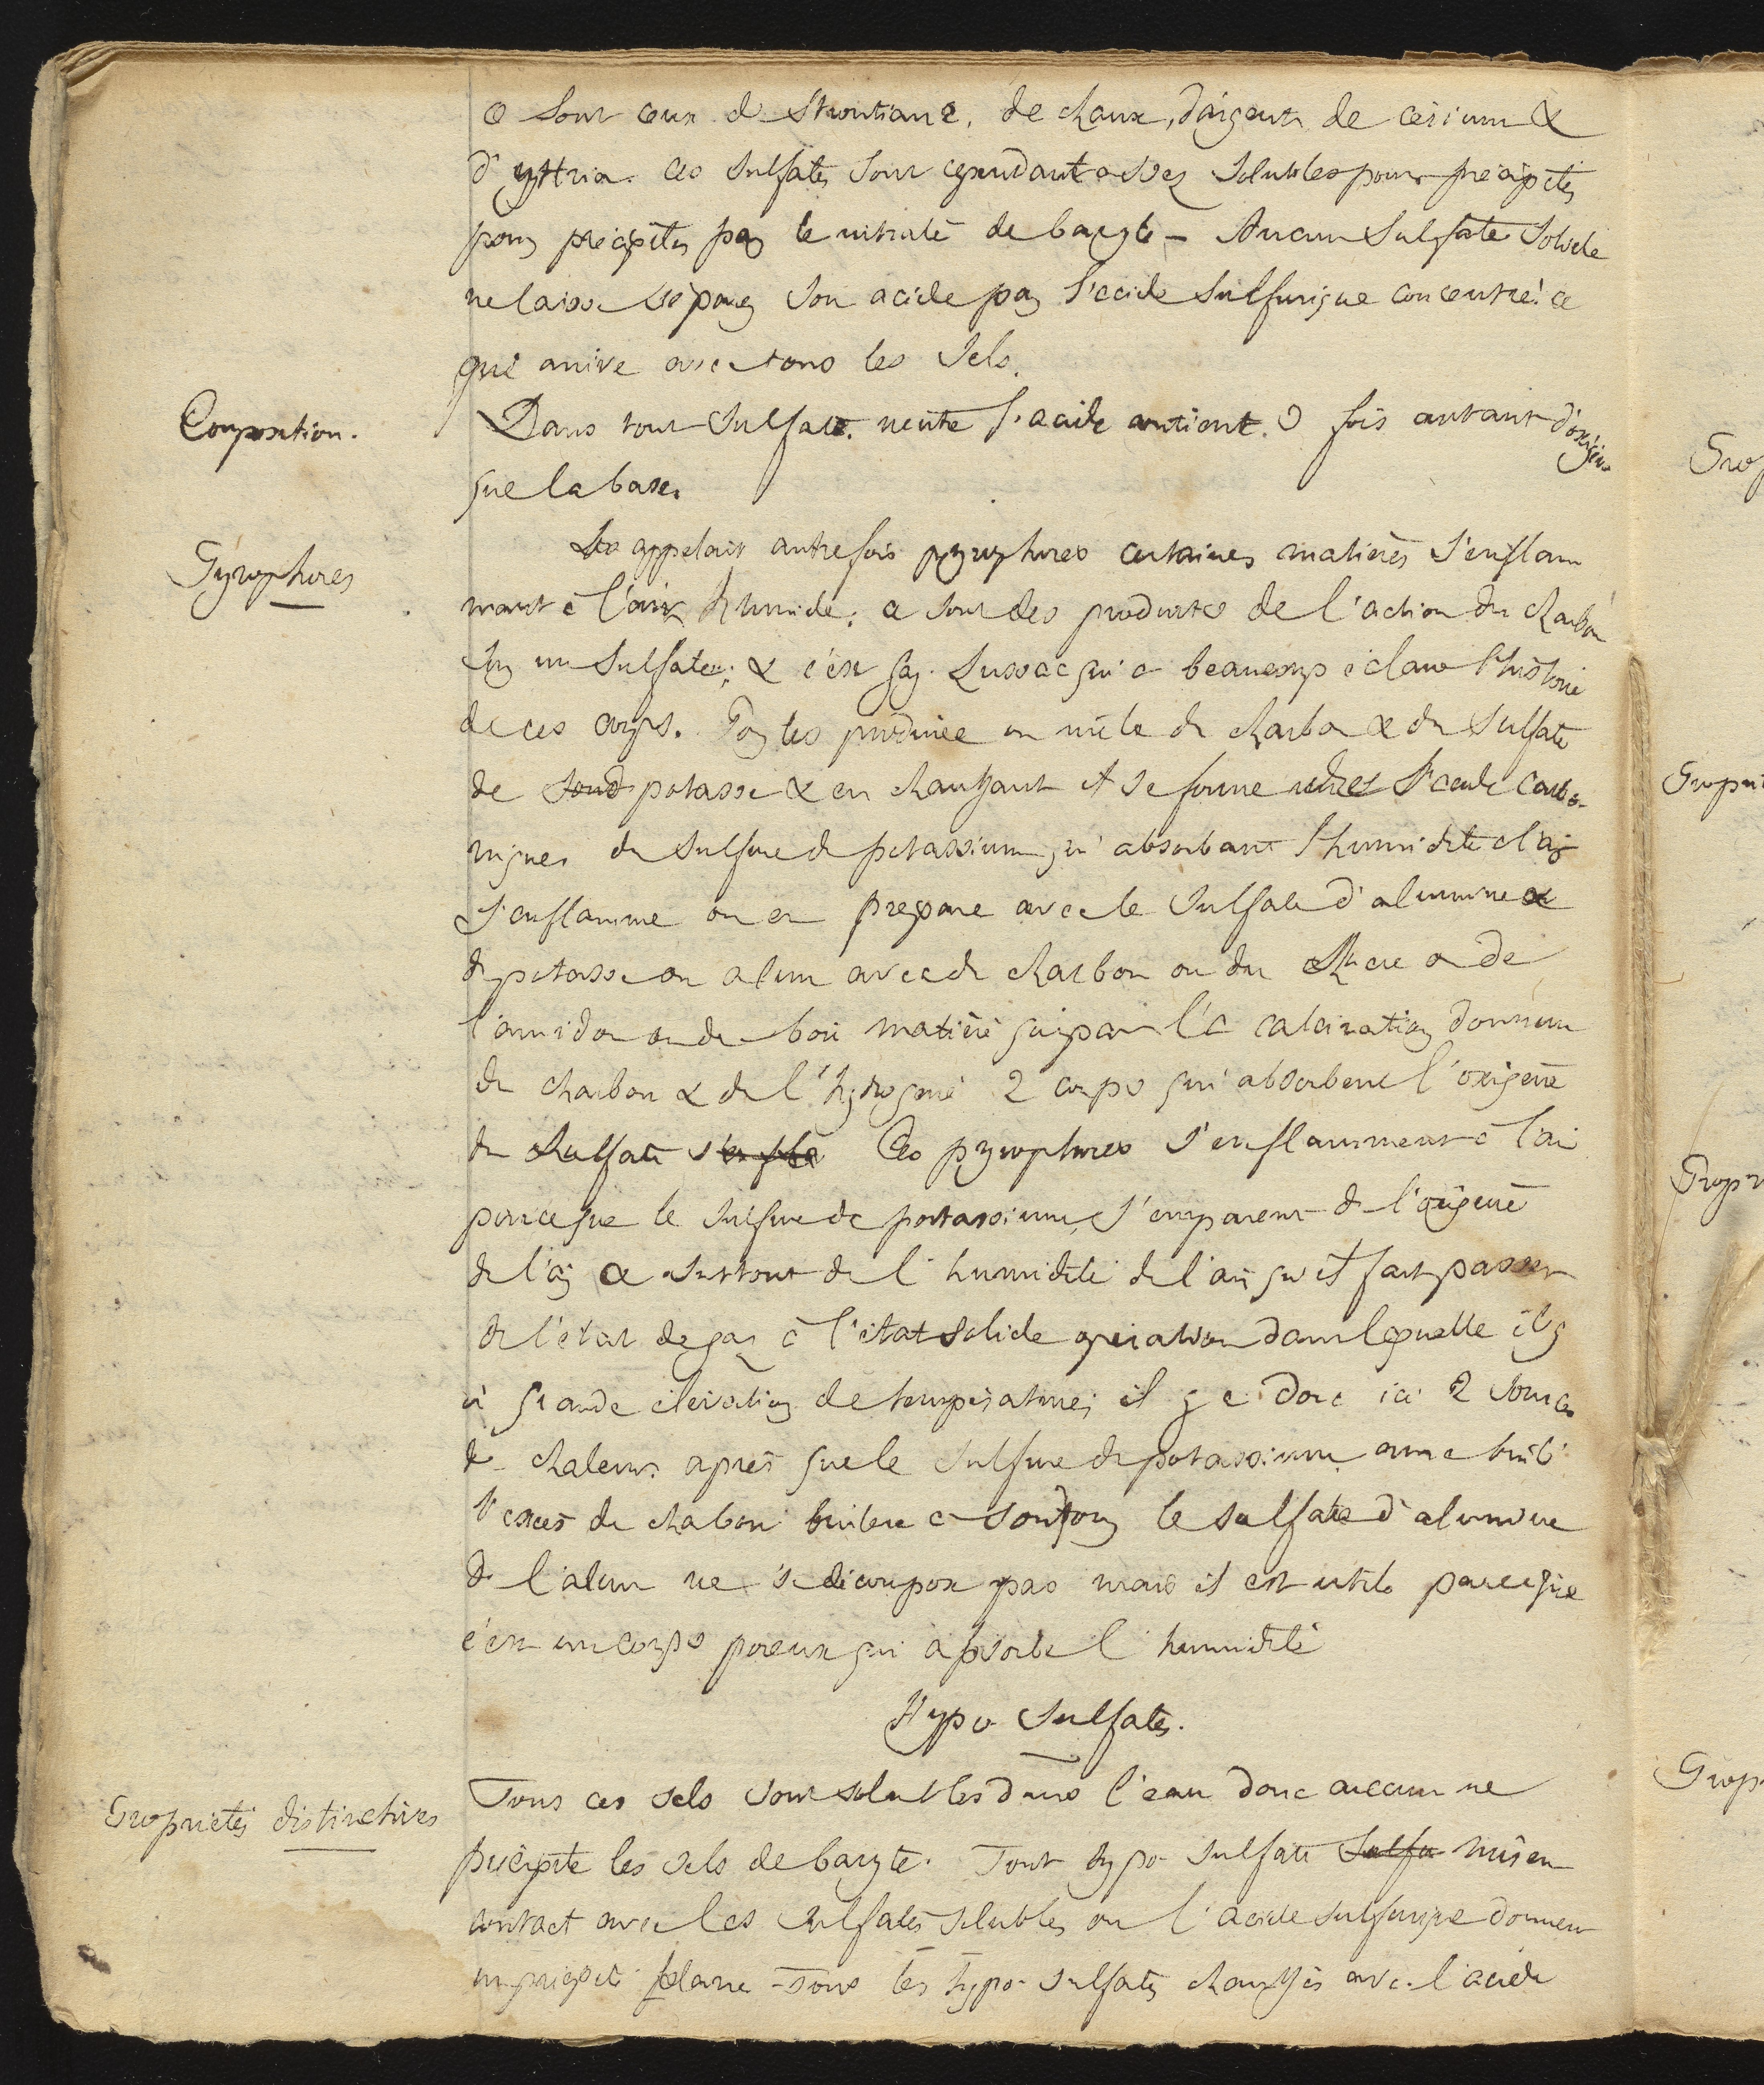 ce sont ceux de Strontiane, de chaux, d'argent, de cérium &
d'yttria. ces sulfates sont cependant assez solubles pour précipiter
pour précipiter par le nitrate de baryte - Aucun sulfate solide
ne laisse séparer son acide par l'acide sulfurique concentré. ce
qui arrive avec tous les sels.
Composition.
Dans tout sulfate neutre l'acide contient 3 fois autant d'oxigène
que la base.
Pyrophores
appelait autrefois pyrophores certaines matières s'enflam
mant à l'air humide; ce sont des produits de l'action du charbon
sur un sulfate; & c'est Gay-Lussac qui a beaucoup éclairé l'histoire
de ces corps. Pour les produire on mêle du charbon & du sulfate
de potasse & en chauffant il se forme de l'acide carbo-
nique du sulfure de potassium qui absorbant l'humidité de l'air
s'enflamme on en prepare avec le sulfate d'alumine &
de potasse ou alun avec du charbon ou du sucre ou de
l'amidon ou du bois matière qui par la calcination donnent
du charbon & de l'hydrogène 2 corps qui absorbent l'oxigène
du sulfate Ces pyrophores s'enflamment à l'air
parceque le sulfure de potassium s'emparent de l'oxigène
de l'air & surtout de l'humidité de l'air qu'il fait passer
de l'état de gaz à l'état solide opération dans laquelle il y
a grande élévation de température; il y a donc ici 2 sources
de chaleur. après que le sulfure de potassium aura brulé
l'excès de charbon brulera à son tour le sulfate d'alumine
de l'alun ne se décompose pas mais il est utile parceque
c'est un corps poreux qui absorbe l'humidité
Hypo sulfates.
Propriétés distinctives
Tous ces sels sont solubles dans l'eau donc aucun ne
précipite les sels de baryte. Tout hypo sulfate sulfa mis en
contact avec les sulfates solubles ou l'acide sulfurique donnent
un précipité blanc - Tous les hypo-sulfates chauffés avec l'acide
Prop
Propriét
Propr
Prop